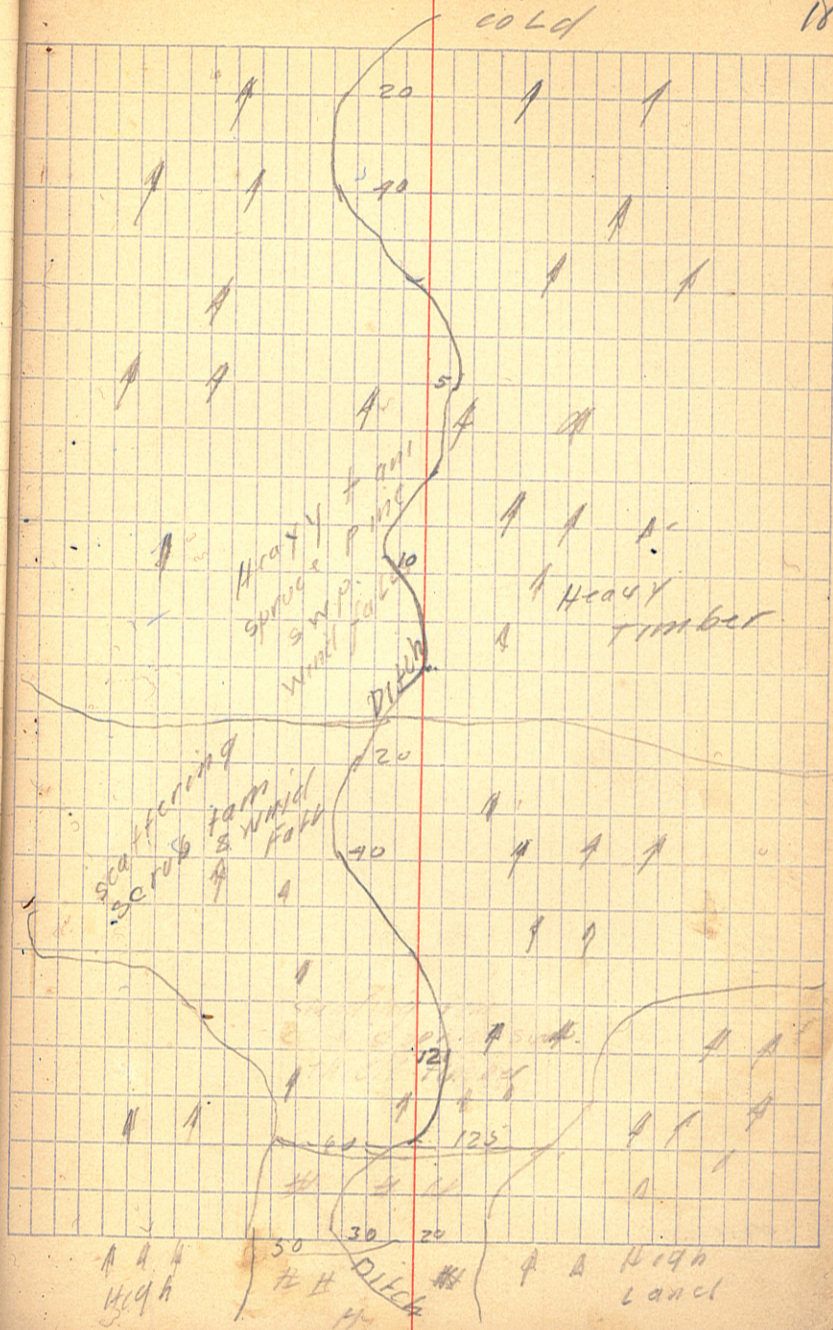 cold
18
20
40
5
Heavy tam
spruce pine
swp.
wind falls
10
Heavy
Timber
Ditch
20
scattering
scrub tam
& wind
Fall
40
12
40
125
50
30
20
Ditch
High
High
Land